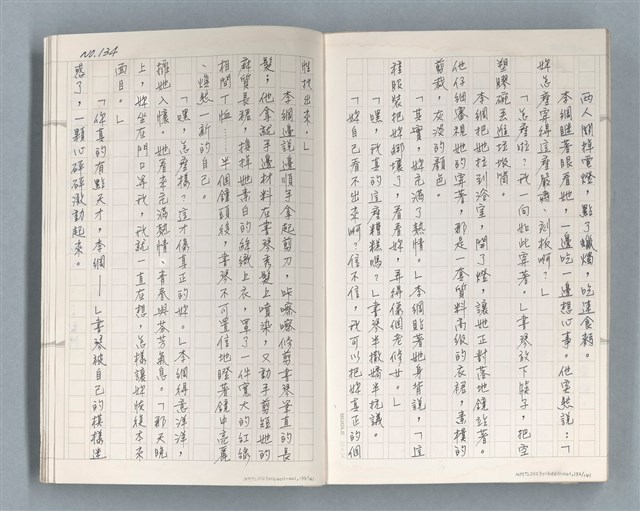 兩人關掉電燈，點了蠟燭，吃速食麵。
李網瞇著眼看她，一邊吃一邊想心事。他突然說：「
妳怎麼穿得這麼嚴肅、刻板啊？」
「怎麼啦？我一向如此穿著。」書琴放下筷子，把空
塑膠碗丟進垃圾筒。
李網把她拉到浴室，開了燈，讓她正對落地鏡站著。
他仔細審視她的穿著，那是一套質料高級的衣裙，素樸的
剪裁，灰淡的顏色。
「其實，妳充滿了熱情。」李網貼著她身背說，「這
種服裝把妳綁壞了，看看妳，弄得像個老修女。」
「嘿，我真的這麼糟糕嗎？」書琴半撒嬌半抗議。
「妳自己看不出來啊？信不信，我可以把妳真正的個
NO.134
性找出來。」
李網邊說邊順手拿起剪刀，咔嚓嚓修剪書琴筆直的長
髮；他拿就手邊材料在書琴秀髮上噴染，又動手剪短她的
麻質長裙，換掉她素白的綿織上衣，罩了一件寬大的紅綠
相間T恤……半個鐘頭後，書琴不可置信地瞪著鏡中亮麗
、煥然一新的自己。
「嘿，怎麼樣？這才像真正的妳。」李網得意洋洋，
擁她入懷。她看來充滿熱情、青春與芬芳氣息。「那天晚
上，妳坐在門口等我，我就一直在想，怎樣讓妳恢復本來
面目。」
「你真的有點天才，李網——」書琴被自己的模樣迷
惑了，一顆心砰砰激動起來。